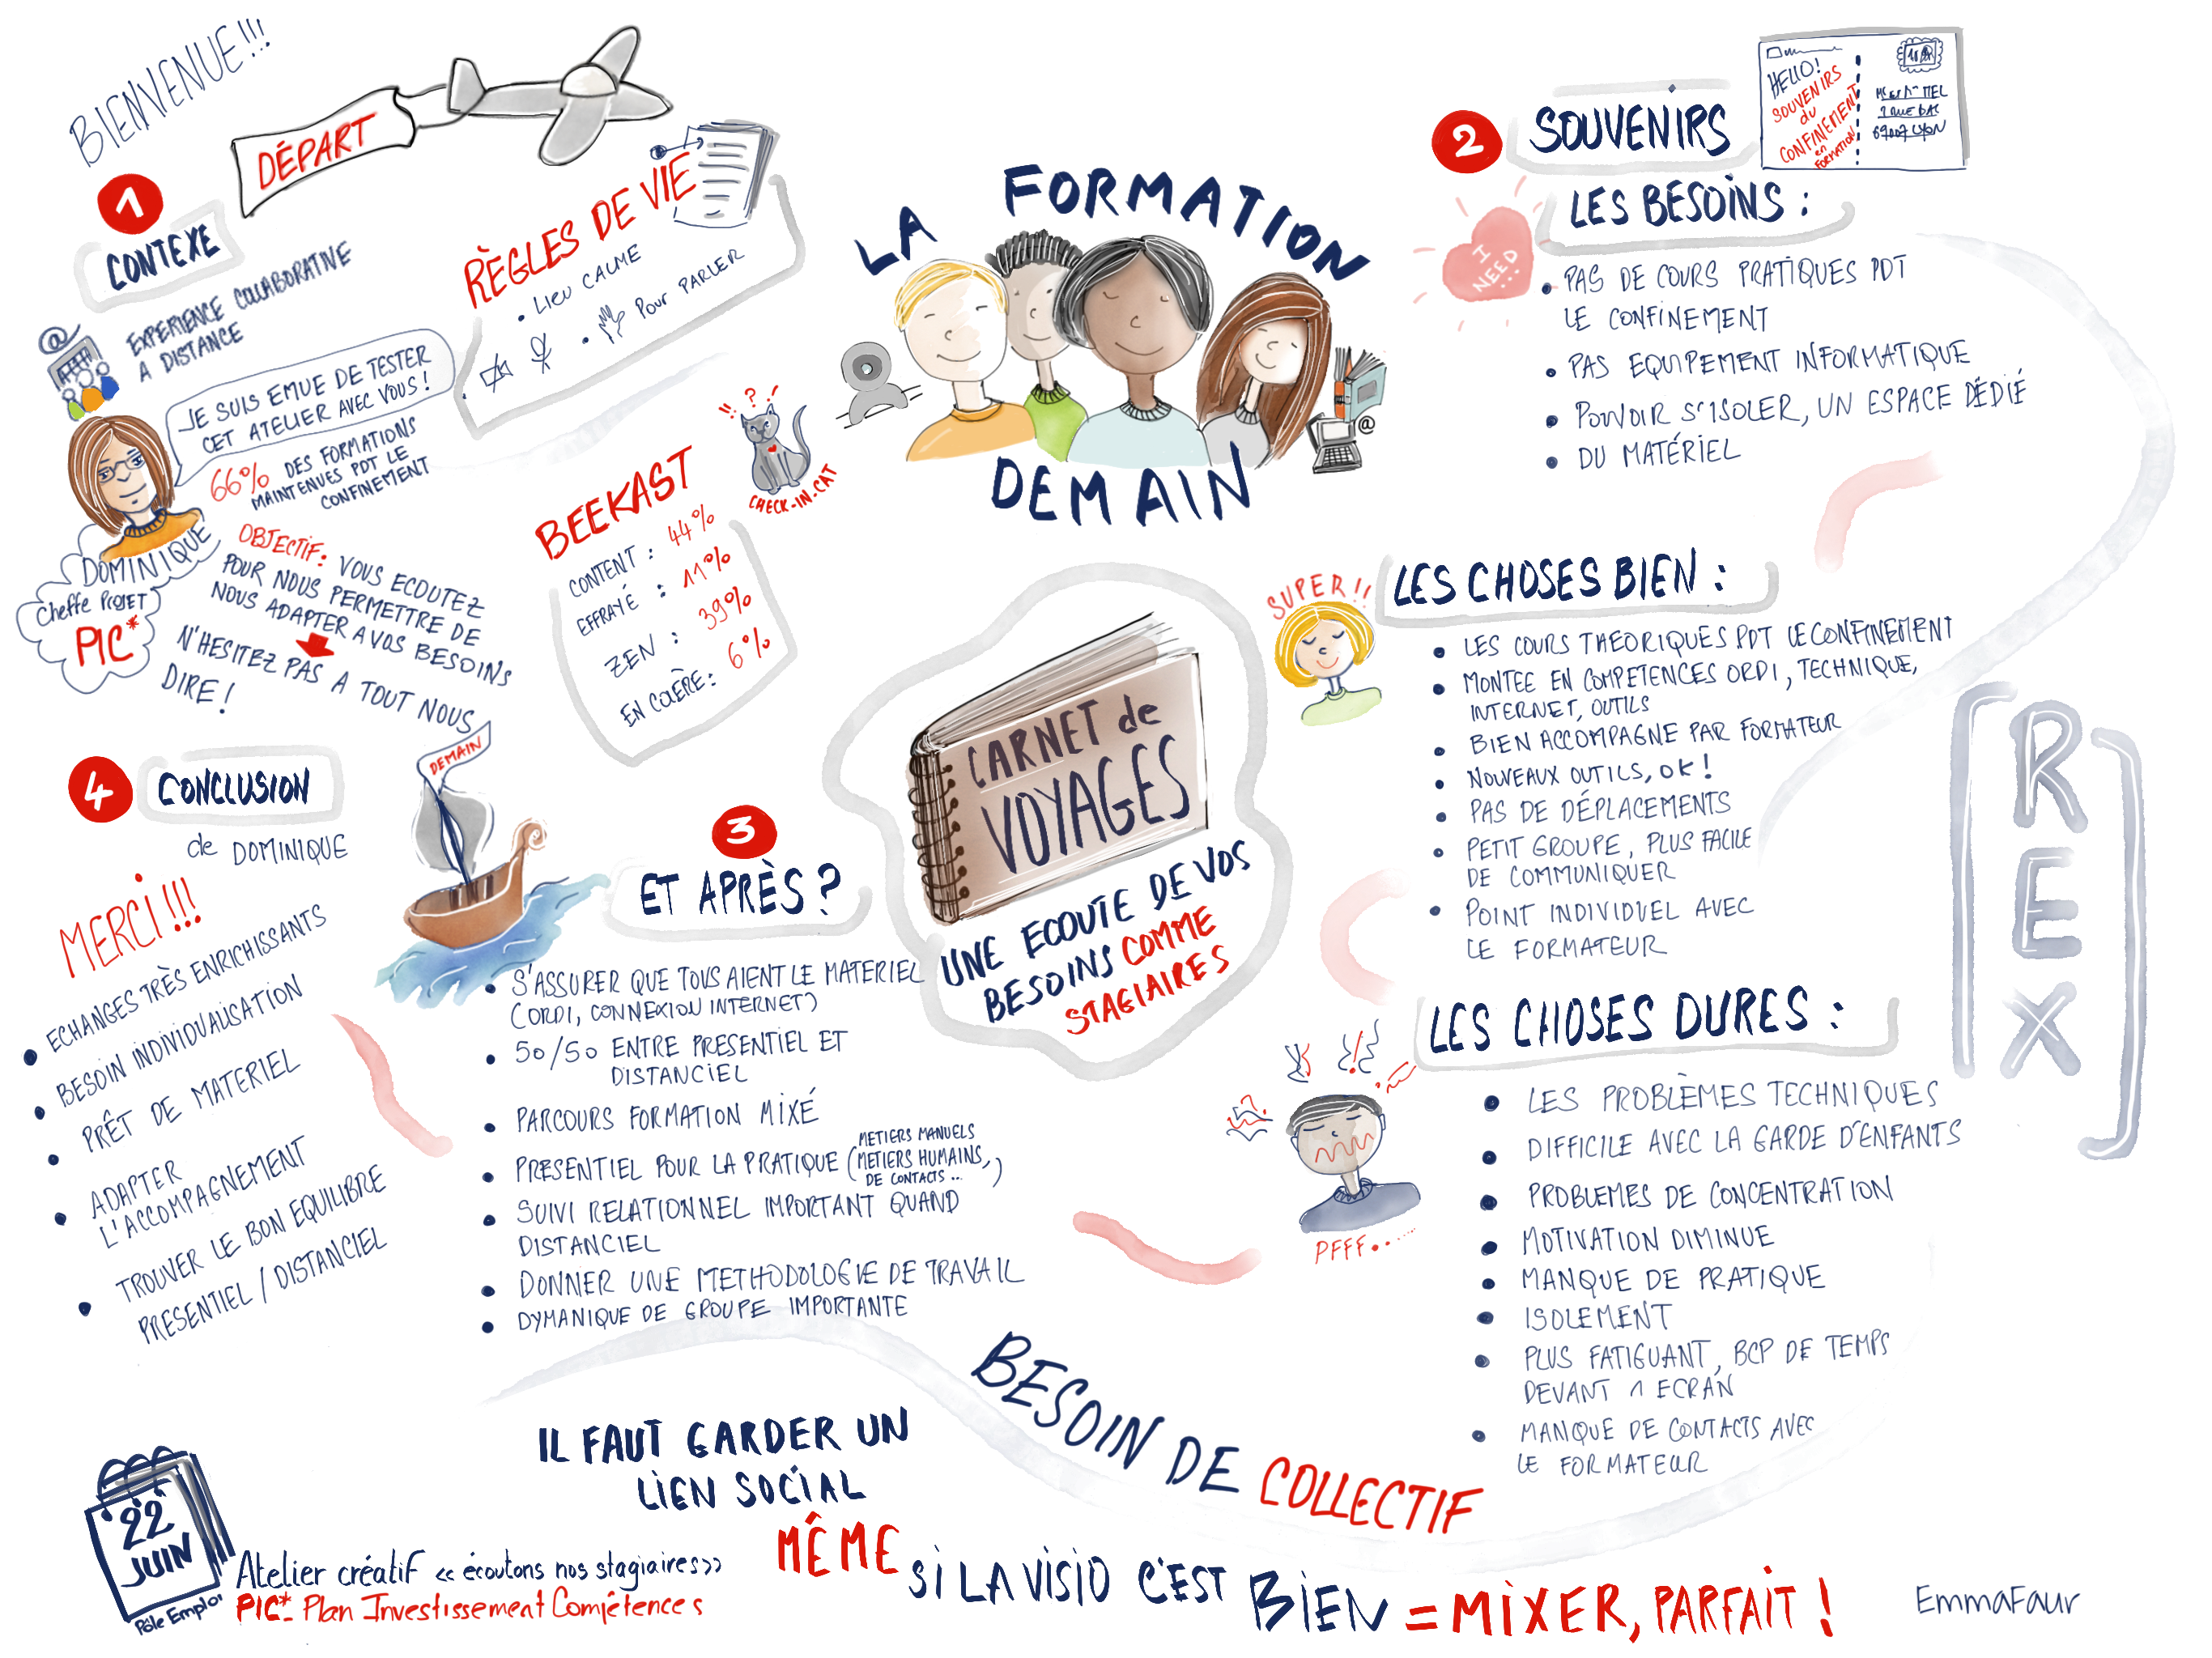 BIENVENUE!!!
DÉPART
1
CONTEXE
EXPERIENCE COLLABORATIVE
A DISTANCE
@
JE SUIS EMUE DE TESTER
CET ATELIER AVEC VOUS!
66% DES FORMATIONS
MAINTENUES PDT LE
CONFINEMENT
DOMINIQUE
Cheffe PROJET
PIC*
OBJECTIF: VOUS ECOUTEZ
POUR NOUS PERMETTRE DE
NOUS ADAPTER A VOS BESOINS
N'HESITEZ PAS A TOUT NOUS
DIRE!
RÈGLES DE VIE
• LIEU CALME
• POUR PARLER
!! ? !
CHECK-IN-CAT
BEEKAST
CONTENT: 44%
EFFRAYÉ: 11%
ZEN: 39%
EN COLÈRE: 6%
LA FORMATION
DEMAIN
@
CARNET de
VOYAGES
UNE ECOUTE DE VOS
BESOINS COMME
STAGIAIRES
2
SOUVENIRS
HELLO!
SOUVENIRS
du
CONFINEMENT
en
FORMATION
LES BESOINS:
I
NEED
...
• PAS DE COURS PRATIQUES PDT
LE CONFINEMENT
• PAS EQUIPEMENT INFORMATIQUE
• POUVOIR S'ISOLER, UN ESPACE DÉDIÉ
• DU MATÉRIEL
SUPER!!
LES CHOSES BIEN:
• LES COURS THEORIQUES PDT LE CONFINEMENT
• MONTEE EN COMPETENCES ORDI, TECHNIQUE,
INTERNET, OUTILS
• BIEN ACCOMPAGNE PAR FORMATEUR
• NOUVEAUX OUTILS, OK!
• PAS DE DÉPLACEMENTS
• PETIT GROUPE, PLUS FACILE
DE COMMUNIQUER
• POINT INDIVIDUEL AVEC
LE FORMATEUR
REX
LES CHOSES DURES:
PFFF......
• LES PROBLÈMES TECHNIQUES
• DIFFICILE AVEC LA GARDE D'ENFANTS
• PROBLEMES DE CONCENTRATION
• MOTIVATION DIMINUE
• MANQUE DE PRATIQUE
• ISOLEMENT
• PLUS FATIGUANT, BCP DE TEMPS
DEVANT 1 ECRAN
• MANQUE DE CONTACTS AVEC
LE FORMATEUR
3
ET APRÈS?
• S'ASSURER QUE TOUS AIENT LE MATERIEL
(ORDI, CONNEXION INTERNET)
• 50/50 ENTRE PRESENTIEL ET
DISTANCIEL
• PARCOURS FORMATION MIXÉ
• PRESENTIEL POUR LA PRATIQUE (METIERS MANUELS
METIERS HUMAINS,
DE CONTACTS...)
• SUIVI RELATIONNEL IMPORTANT QUAND
DISTANCIEL
• DONNER UNE METHODOLOGIE DE TRAVAIL
• DYMANIQUE DE GROUPE IMPORTANTE
DEMAIN
4
CONCLUSION
de DOMINIQUE
MERCI!!!
• ECHANGES TRÈS ENRICHISSANTS
• BESOIN INDIVIDUALISATION
• PRÊT DE MATERIEL
• ADAPTER
L'ACCOMPAGNEMENT
• TROUVER LE BON EQUILIBRE
PRESENTIEL / DISTANCIEL
IL FAUT GARDER UN
LIEN SOCIAL
BESOIN DE COLLECTIF
MÊME SI LA VISIO C'EST BIEN = MIXER, PARFAIT!
22
JUIN
Pôle Emploi
Atelier créatif «écoutons nos stagiaires»
PIC* Plan Investissement Compétences
EmmaFaur